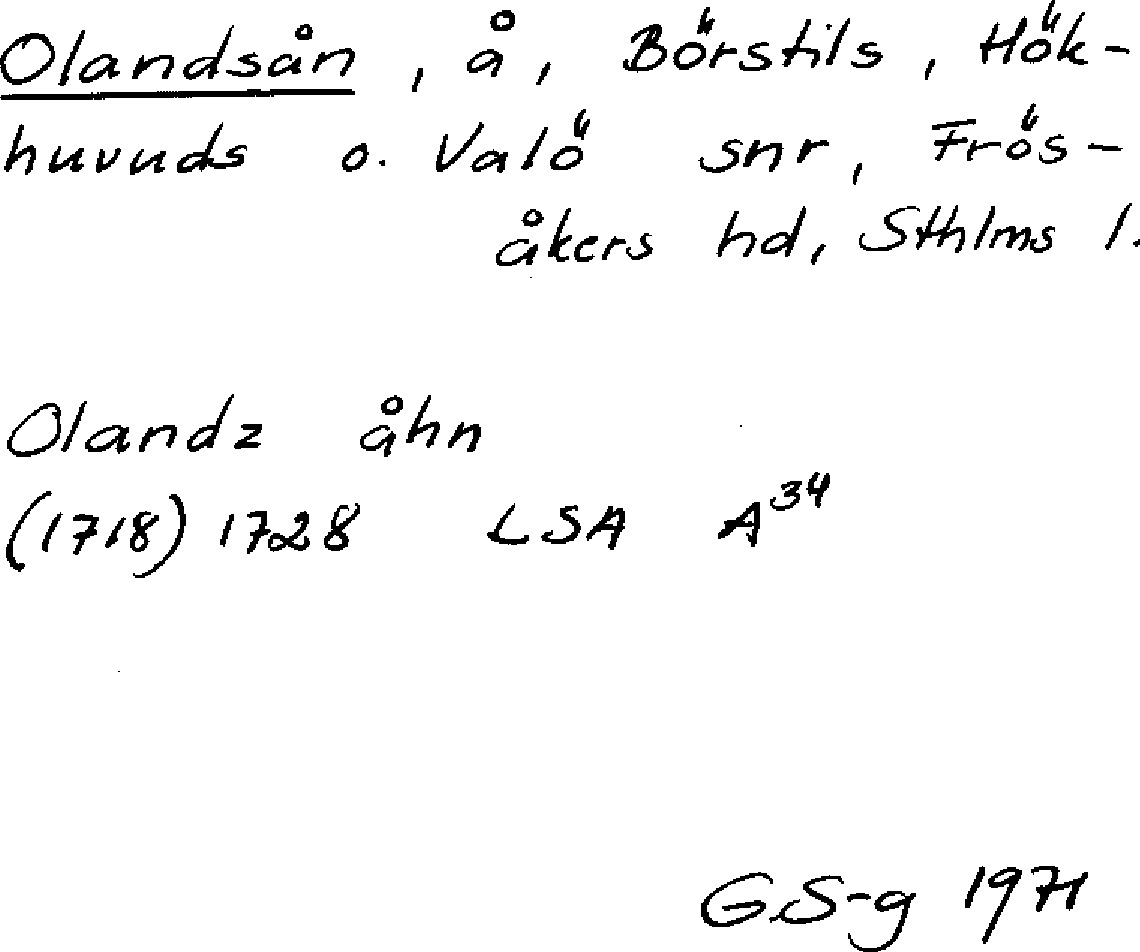 Olandsån, å, Börstils, Hök-
huvuds o. Valö snr, Frös-
åkers hd, Sthlms l.
Olandz åhn
(1718) 1728 LSA A34
G.S-g 1971